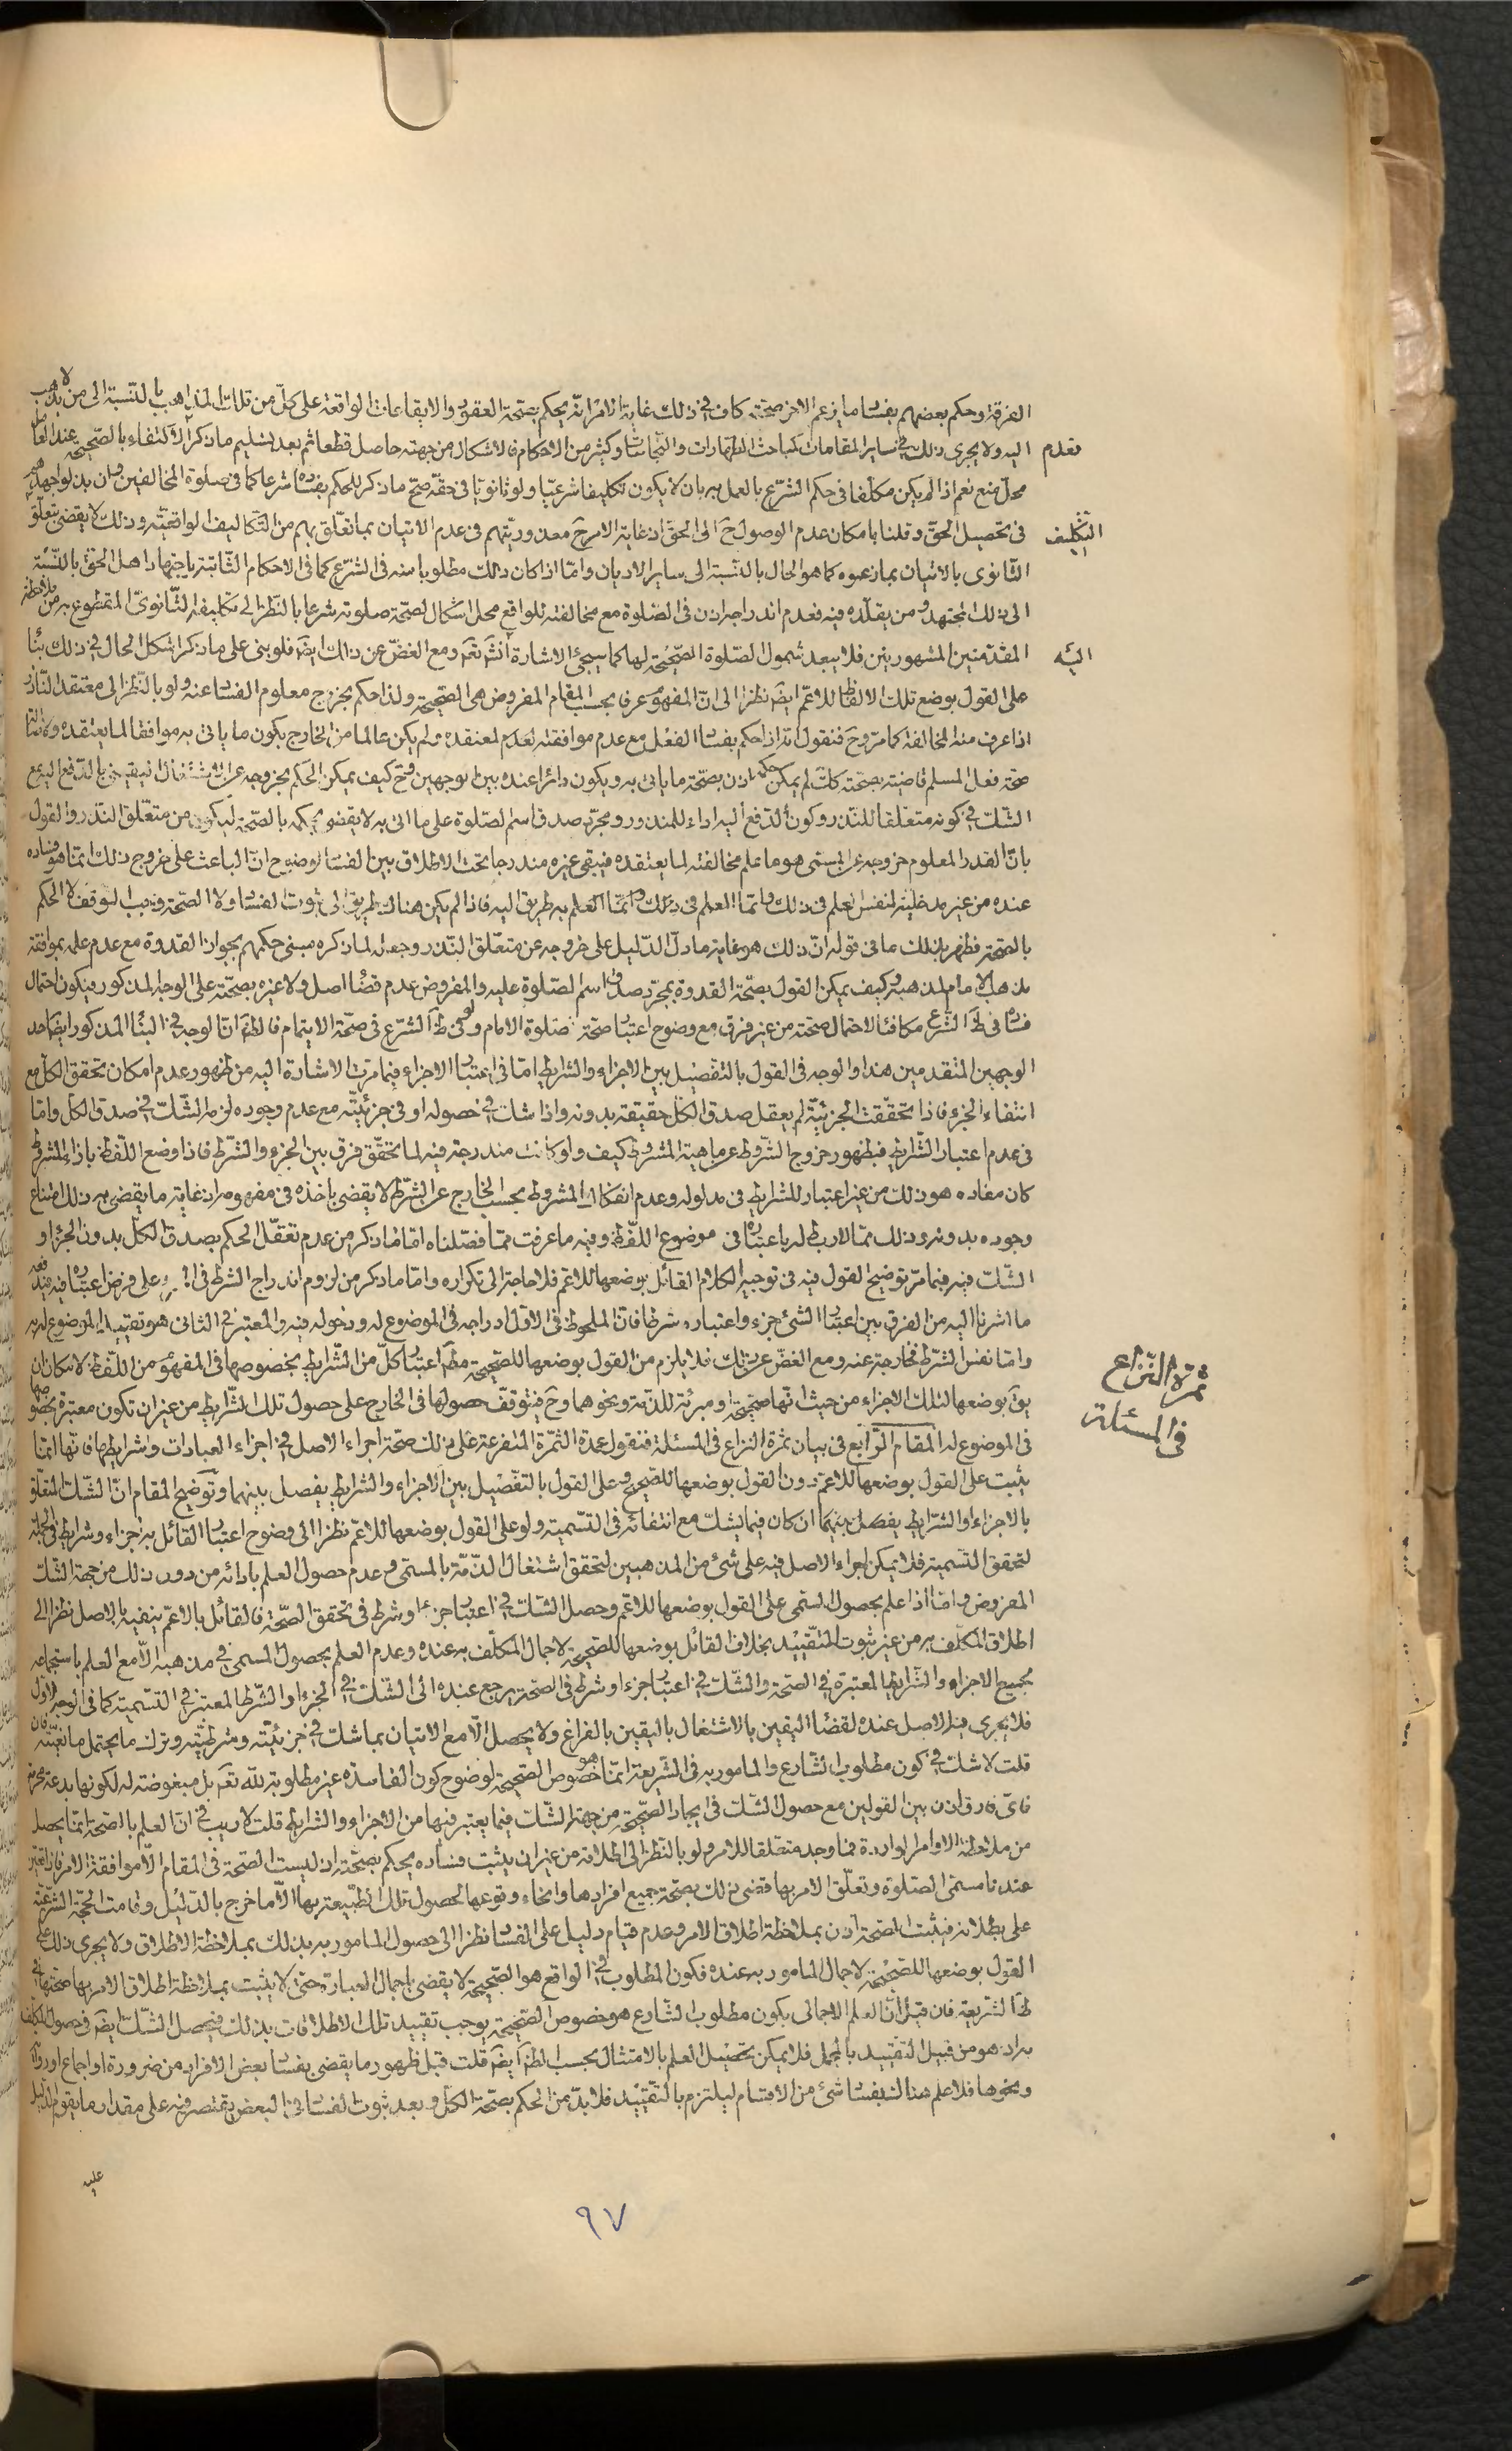 الفرقة وحكم بعضهم بفساد ما يزعم الاخر صحته كاف في ذلك غاية الامر انه يحكم بصحة العقود والايقاعات الواقعة على كل من تلك المذاهب بالنسبة الى من لا يذهب
اليه ولا يجرى ذلك في ساير المقامات كمباحث الطهارات والنجاسات وكثير من الاحكام فالاشكال من جهته حاصل قطعا ثم بعد تسليم ما ذكر الاكتفاء بالصحيح عند العامل
محل منع نعم اذا لم يكن مكلفا في حكم الشرع بالعمل به بان لا يكون تكليفا شرعيا ولو ثانويا في حقه صح ما ذكر للحكم بفساده شرعا كما في صلوة المخالفين وان بذلوا جهدهم
في تحصيل الحق وقلنا بامكان عدم الوصول ح الى الحق اذ غاية الامر ح معذوريتهم في عدم الاتيان بما تعلق بهم من التكاليف الواقعية وذلك لا يقضى بتعلق
الثانوى بالاتيان بما زعموه كما هو الحال بالنسبة الى ساير الاديان واما اذا كان ذلك مطلوبا منه في الشرع كما في الاحكام الثابتة باجتهاد اهل الحق بالنسبة
الى ذلك المجتهد ومن يقلده فيه فعدم اندراجه اذن في الصلوة مع مخالفته للواقع محل اشكال لصحة صلوته شرعا بالنظر الى تكليفه الثانوى المقطوع به من ملاحظة
المقدمتين المشهورتين فلا يبعد شمول الصلوة الصحيحة لها كما سيجئ الاشارة انشه تعه ومع الغض عن ذلك ايضه فلو بنى على ما ذكر اشكل الحال في ذلك بناء
على القول بوضع تلك الالفاظ للاعم ايضه نظرا الى ان المفهوم عرفا بحسب المقام المفروض هى الصحيحة ولذا حكم بخروج معلوم الفساد عنه ولو بالنظر الى معتقد الناذر
اذا عرف منه المخالفة كما مر وح فنقول انه اذا حكم بفساد الفعل مع عدم موافقته لمعتقده ولم يكن عالما من الخارج بكون ما ياتى به موافقا لما يعتقده
صحة فعل المسلم قاضية بصحته كك لم يمكن حكمه اذن بصحة ما ياتى به ويكون دائرا عنده بين الوجهين وح كيف يمكن الحكم بخروجه عن اشتغال اليقينى بالدفع اليه مع
الشك في كونه متعلقا للنذر وكون الدفع اليه اداء للمنذور ومجرد صدق اسم الصلوة على ما اتى به لا يقضى بحكمه بالصحة ليكون من متعلق النذر والقول
بان القدر المعلوم خروجه عن المسمى هو ما علم مخالفته لما يعتقده فيبقى غيره مندرجا تحت الاطلاق بين الفساد لوضوح ان الباعث على خروج ذلك انما هو فساده
عنده من غير مدخلية لنفس العلم في ذلك وانما العلم في ذلك وانما العلم به طريق اليه فاذا لم يكن هناك طريق الى ثبوت الفساد ولا الصحة وجب التوقف لا الحكم
بالصحة فظهر بذلك ما في قوله ان ذلك هو غاية ما دل الدليل على خروجه عن متعلق النذر وجعله لما ذكره مبنى حكمهم بجواز القدوة مع عدم علمه بموافقة
مذهب الامام لمذهبه وكيف يمكن القول بصحة القدوة بمجرد صدق اسم الصلوة عليه والمفروض عدم قضاء اصل ولا غيره بصحته على الوجه المذكور فيكون احتمال
فساده في ظ الشرع مكافئا لاحتمال صحته من غير فرق مع وضوح اعتبار صحة صلوة الامام ولو في ظ الشرع في صحة الايتمام فالظه ان الوجه في البناء المذكور ايضا احد
الوجهين المتقدمين هذا والوجه في القول بالتفصيل بين الاجزاء والشرايط اما في اعتبار الاجزاء فيما مرت الاشارة اليه من ظهور عدم امكان تحقق الكل مع
انتفاء الجزء فاذا تحققت الجزئية لم يعقل صدق الكل حقيقة بدونه واذا شك في حصوله او في جزئيته مع عدم وجوده لزمه الشك في صدق الكل واما
في عدم اعتبار الشرايط فبظهور خروج الشروط عن ماهية المشروط كيف ولو كانت مندرجة فيه لما تحقق فرق بين الجزء والشرط فاذا وضع اللفظ بازاء المشروط
كان مفاده هو ذلك من غير اعتبار للشرايط في مدلوله وعدم انفكاك المشروط بحسب الخارج عن الشرط لا يقضى باخذه في مفهومه اذ غاية ما يقضى به ذلك امتناع
وجوده بدونه وذلك مما لا ربط له باعتباره في موضوع اللفظ وفيه ما عرفت مما فصلناه اما ما ذكر من عدم تعقل الحكم بصدق الكل بدون الجزء او
الشك فيه فيما مر توضيح القول فيه في توجيه الكلام القائل بوضعها للاعم فلا حاجة الى تكراره واما ما ذكر من لزوم اندراج الشرط في وعلى فرض اعتباره فيه
ما اشرنا اليه من الفرق بين اعتبار الشئ جزء واعتباره شرطا فان الملحوظ في الاول ادراجه في الموضوع له ودخوله فيه والمعتبر في الثانى هو تقييد الموضوع له به
واما نفس الشرط فخارجة عنه ومع الغض عن ذلك فلا يلزم من القول بوضعها للصحيحة مطه اعتبار كل من الشرايط بخصوصها في المفهوم من اللفظ لامكان ان
يق بوضعها لتلك الاجزاء من حيث انها صحيحة او مبرئة للذمة ونحوهما وح فيتوقف حصولها في الخارج على حصول تلك الشرايط من غير ان تكون معتبرة بخصوصها
في الموضوع له المقام الرابع في بيان ثمرة النزاع في المسئلة فنقول عمدة الثمرة المتفرعة على ذلك صحة اجراء الاصل في اجزاء العبادات وشرايطها فانها انما
يثبت على القول بوضعها للاعم دون القول بوضعها للصحيح وعلى القول بالتفصيل بين الاجزاء والشرايط يفصل بينهما وتوضيح المقام ان الشك المتعلق
بالاجزاء او الشرايط يفصل بينهما ان كان فيما يشك مع انتفائه في التسمية ولو على القول بوضعها للاعم نظرا الى وضوح اعتبار القائل به اجزاء وشرايط في الجملة
لتحقق التسمية فلا يمكن اجراء الاصل فيه على شئ من المذهبين لتحقق اشتغال الذمة بالمسمى وعدم حصول العلم بادائه من دون ذلك من جهة الشك
المفروض واما اذا علم بحصول المسمى على القول بوضعها للاعم وحصل الشك في اعتبار جزء او شرط في تحقق الصحة فالقائل بالاعم ينفيه بالاصل نظرا الى
اطلاق المكلف به من غير ثبوت التقييد بخلاف القائل بوضعها للصحيحة لاجمال المكلف به عنده وعدم العلم بحصول المسمى في مذهبه الا مع العلم باستجماعه
لجميع الاجزاء والشرايط المعتبرة في الصحة والشك في اعتبار جزء او شرط في الصحة يرجع عنده الى الشك في الجزء او الشرط المعتبر في التسمية كما في الوجه الاول
فلا يجرى فيه الاصل عنده لقضاء اليقين بالاشتغال باليقين بالفراغ ولا يحصل الا مع الاتيان بما شك في جزئيته وشرطيته وترك ما يحتمل مانعيته فان
قلت لا شك في كون مطلوب الشارع والمامور به في الشريعة انما هو خصوص الصحيحة لوضوح كون الفاسدة غير مطلوبة لله تعه بل مبغوضة له لكونها بدعة محرمة
فاى فارق اذن بين القولين مع حصول الشك في ايجاد الصحيحة من جهة الشك فيما يعتبر فيها من الاجزاء والشرايط قلت لا ريب في ان العلم بالصحة انما يحصل
من ملاحظة الاوامر الواردة فما وجد متعلقا للامر ولو بالنظر الى اطلاقه من غير ان يثبت فساده يحكم بصحته اذ ليست الصحة في المقام الا موافقة الامر فاذا تعين
عندنا مسمى الصلوة وتعلق الامر بها قضى ذلك بصحة جميع افرادها وانحاء وقوعها لحصول تلك الطبيعة بها الا ما خرج بالدليل وقامت الحجة الشرعية
على بطلانه فيثبت الصحة اذن بملاحظة اطلاق الامر وعدم قيام دليل على الفساد نظرا الى حصول المامور به بذلك بملاحظة الاطلاق ولا يجرى ذلك على
القول بوضعها للصحيحة لاجمال المامور به عنده فكون المطلوب في الواقع هو الصحيحة لا يقضى باجمال العبارة حتى لا يثبت بملاحظة اطلاق الامر بها صحتها في
ظ الشريعة فان قيل ان العلم الاجمالى بكون مطلوب الشارع هو خصوص الصحيحة يوجب تقييد تلك الاطلاقات بذلك فيحصل الشك ايضه في حصول المكلف
به اذ هو من قبيل التقييد بالمجمل فلا يمكن تحصيل العلم بالامتثال بحسب الظه ايضه قلت قبل ظهور ما يقضى بفساد بعض الافراد من ضرورة او اجماع او رواية
ونحوها فلا علم هناك بفساد شئ من الاقسام ليلتزم بالتقييد فلا بد من الحكم بصحة الكل وبعد ثبوت الفساد في البعض يقتصر فيه على مقدار ما يقوم الدليل
عليه
فعدم
التكليف
اليه
ثمرة النزاع
في المسئلة
٩٧